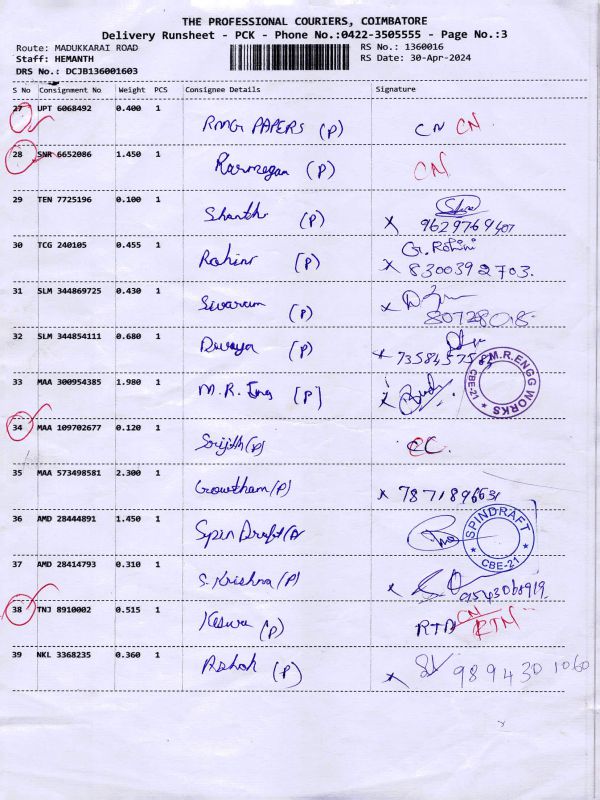 THE PROFESSIONAL COURIERS, COIMBATORE
Delivery Runsheet - PCK - Phone No.:0422-3505555 - Page No.:3
Route: MADUKKARAI ROAD RS No.: 1360016
Staff: HEMANTH RS Date: 30-Apr-2024
DRS No.: DCJB136001603
S No Consignment No Weight PCS Consignee Details Signature
27 UPT 6068492 0.400 1 RMG PAPERS (P) CN CN
28 SNR 6652086 1.450 1 Karmegan (P) CN
29 TEN 7725196 0.100 1 Shanthi (P) X 9629769407
30 TCG 240105 0.455 1 Rohini (P) G. Rohini X 8300392703.
31 SLM 344869725 0.430 1 Sivaram (P) X
32 SLM 344854111 0.680 1 (P) X
33 MAA 300954385 1.980 1 M.R. Eng [P] X M.R.ENGG WORKS CBE-21
34 MAA 109702677 0.120 1 Srijith (P) CC.
35 MAA 573498581 2.300 1 Gowtham (P) X
36 AMD 28444891 1.450 1 Spin Draft (P) SPINDRAFT CBE-21
37 AMD 28414793 0.310 1 S. Krishna (P) X
38 TNJ 8910002 0.515 1 (P) RTN CN RTN
39 NKL 3368235 0.360 1 Ashok (P) X 9894301060